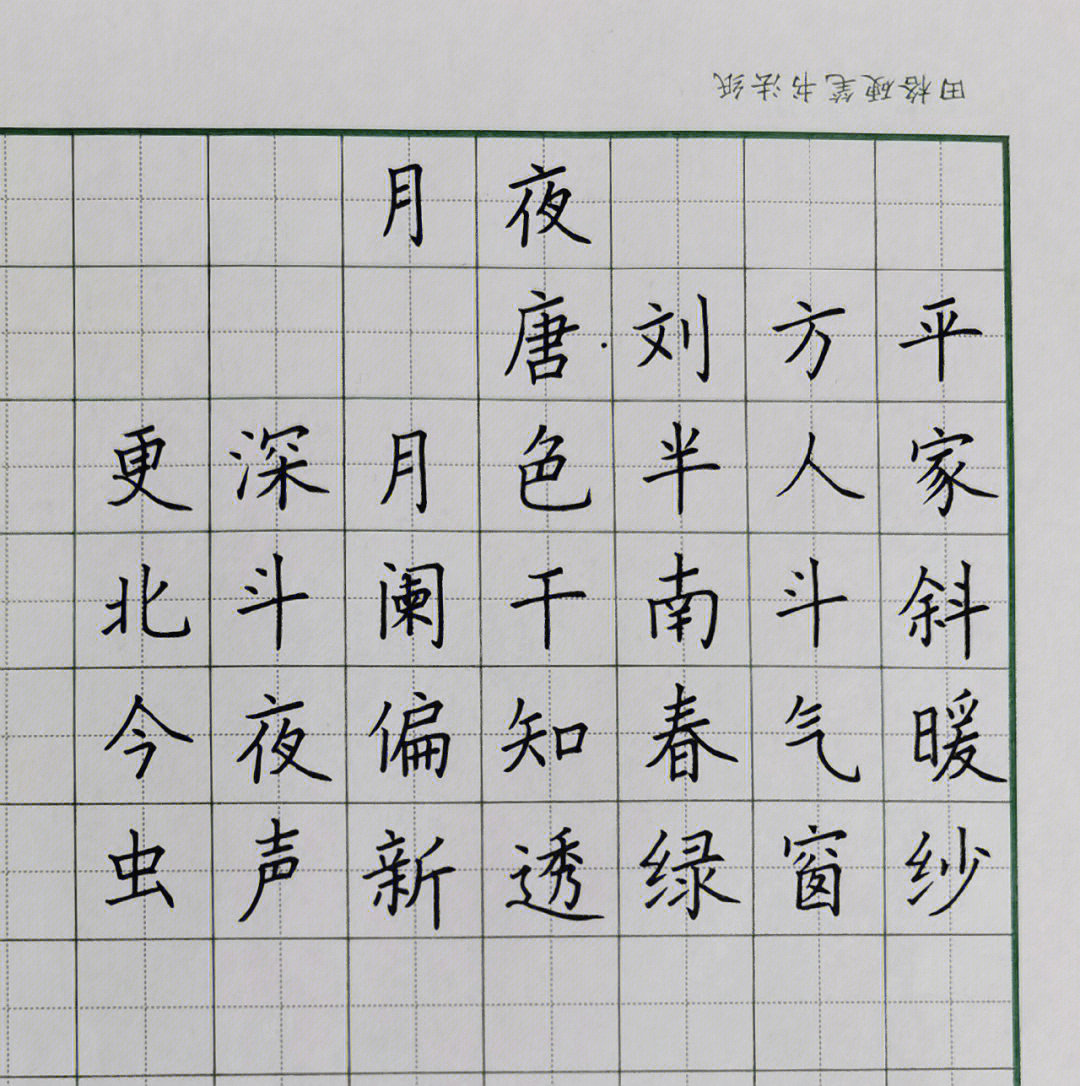 田格硬笔书法纸
月夜
唐·刘方平
更深月色半人家
北斗阑干南斗斜
今夜偏知春气暖
虫声新透绿窗纱